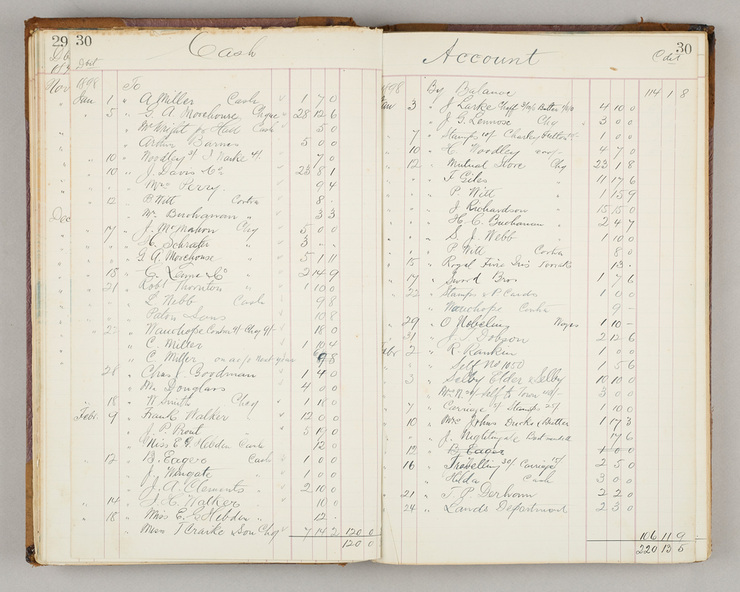 29 30
Cash
Debit
Nov 1898 To
Jan 1 " A Miller Cash 1 7 0
5 " G. A. Morehouse Cheque 28 12 6
" Wright Cash 5 0
" Arthur Barnes 5 0 0
10 " Woodley 4/ 3/ 7 0
10 " J. Davis & Co 23 8 1
" Mrs Perry 9 4
12 " P. Witt Contra 8 -
Dec " Wm Buchanan 3 3
17 " J. McMahon Chq 5 0 0
" H. Schrader 3 - -
" G A Morehouse 5 1 11
18 " & Co 2 14 9
21 " Robt Thornton 1 10 0
" L. Webb Cash 9 8
" Paton Sons 10 8
22 " Wauchope Contra 9/- Chq 9/- 18 0
" C. Miller 1 10 4
" C. Miller on a/c next year 9 8
28 " Chas J. Goodman 1 4 0
" Wm Douglass 4 0 0
18 " W Smith Chq 1 1 0
Febr 9 " Frank Walker 12 0 0
" J. P. Prout 5 19 0
" Miss E G Hebden Cash 12 0
12 " B. Eagers Cash 1 0 0
" J. Wingate 1 0 0
" J. A. Clements 2 10 0
14 " J. H. Walker 10 0
18 " Miss E. G. Hebden 12 -
" Messrs T Crarke & Son Chq 7 14 2 120 0
120 0
30
Account
Credit
1898 By Balance 114 1 8
Jan 3 " J Larke Butter 4 10 0
" J. G. Lennox Chq 3 0 0
7 " Stamps 10/- Charley Butter 1 0 0
10 " H. Woodley 4 7 0
12 " Mutual Store Chq 23 1 8
" F Giles 11 17 6
" P. Witt 1 15 9
" J. Richardson 15 15 0
" H. C. Buchanan 2 4 7
" S. J. Webb 1 10 0
" P. Witt Contra 8 0
15 " Royal Fire Ins 13 -
17 " Sword Bros 1 7 6
22 " Stamps & P. Cards 1 0 0
" Wauchope Contra 9 -
29 " O Nobelius Wages 1 10 -
31 " J. S. Dobson 2 12 6
Febr 2 " R. Rankin 1 0 0
" Self No 1050 1 5 6
3 " Selby Elder & Selby 10 10 0
" Wm R self to town
7 " Carriage Stamps 1 10 0
10 " Mrs Johns Ducks & Butter 1 17 3
" J. Nightingale 17 6
12 " B. Eagers 1 0 0
16 " Travelling 30/- Carriage 15/- 2 5 0
" Hilda Cash 3 0 0
21 " T. P. Derham 2 2 0
24 " Lands Department 2 3 0
106 11 9
220 13 5